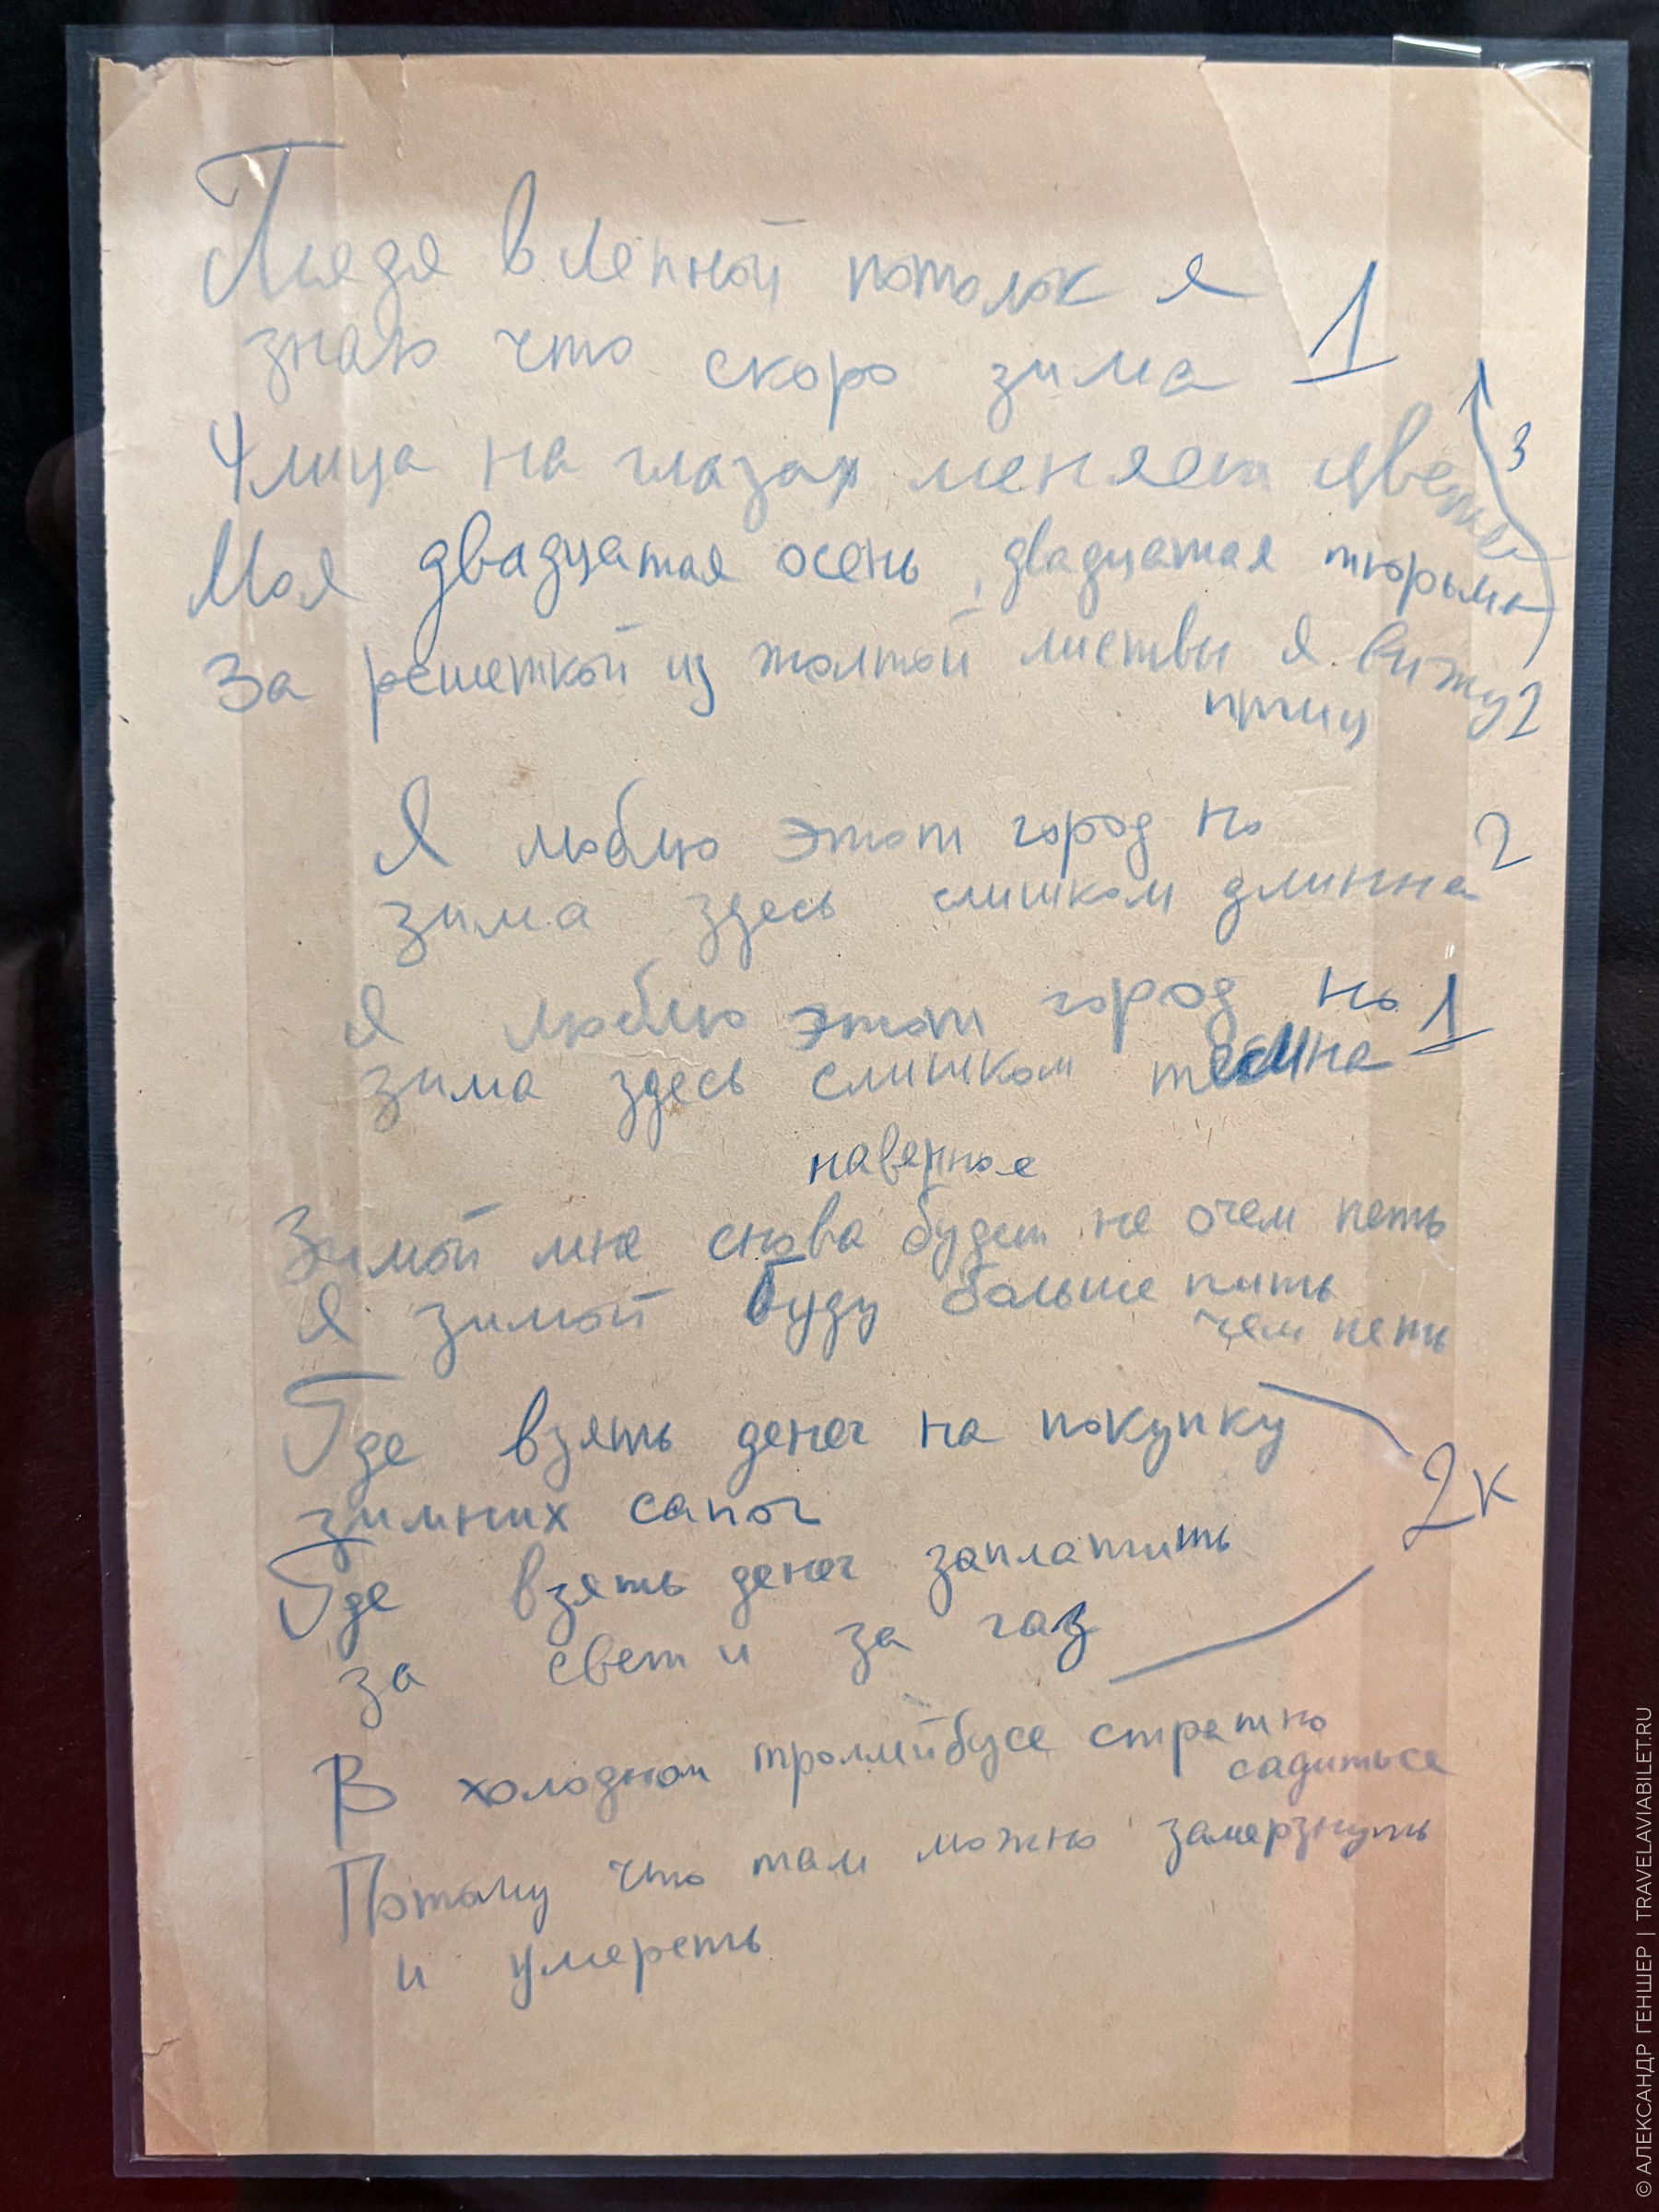 Глядя в лепной потолок я
знаю что скоро зима 1
Улица на глазах меняет цвета
3
Моя двадцатая осень, двадцатая тюрьма
За решеткой из жолтой листвы я вижу 2
птиц
Я люблю этот город но
зима здесь слишком длинна 2
Я люблю этот город но 1
зима здесь слишком темна
наверное
Зимой мне снова будет не очем петь
Я зимой буду больше пить
чем петь
Где взять денег на покупку
зимних сапог
2к
Где взять денег заплатить
за свет и за газ
В холодном троллейбусе страшно
садиться
Потому что там можно замерзнуть
и умереть
© АЛЕКСАНДР ГЕНШЕР | TRAVELAVIABILET.RU